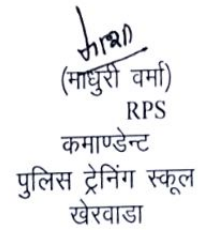 (माधुरी वर्मा)
RPS
कमाण्डेन्ट
पुलिस ट्रेनिंग स्कूल
खेरवाडा